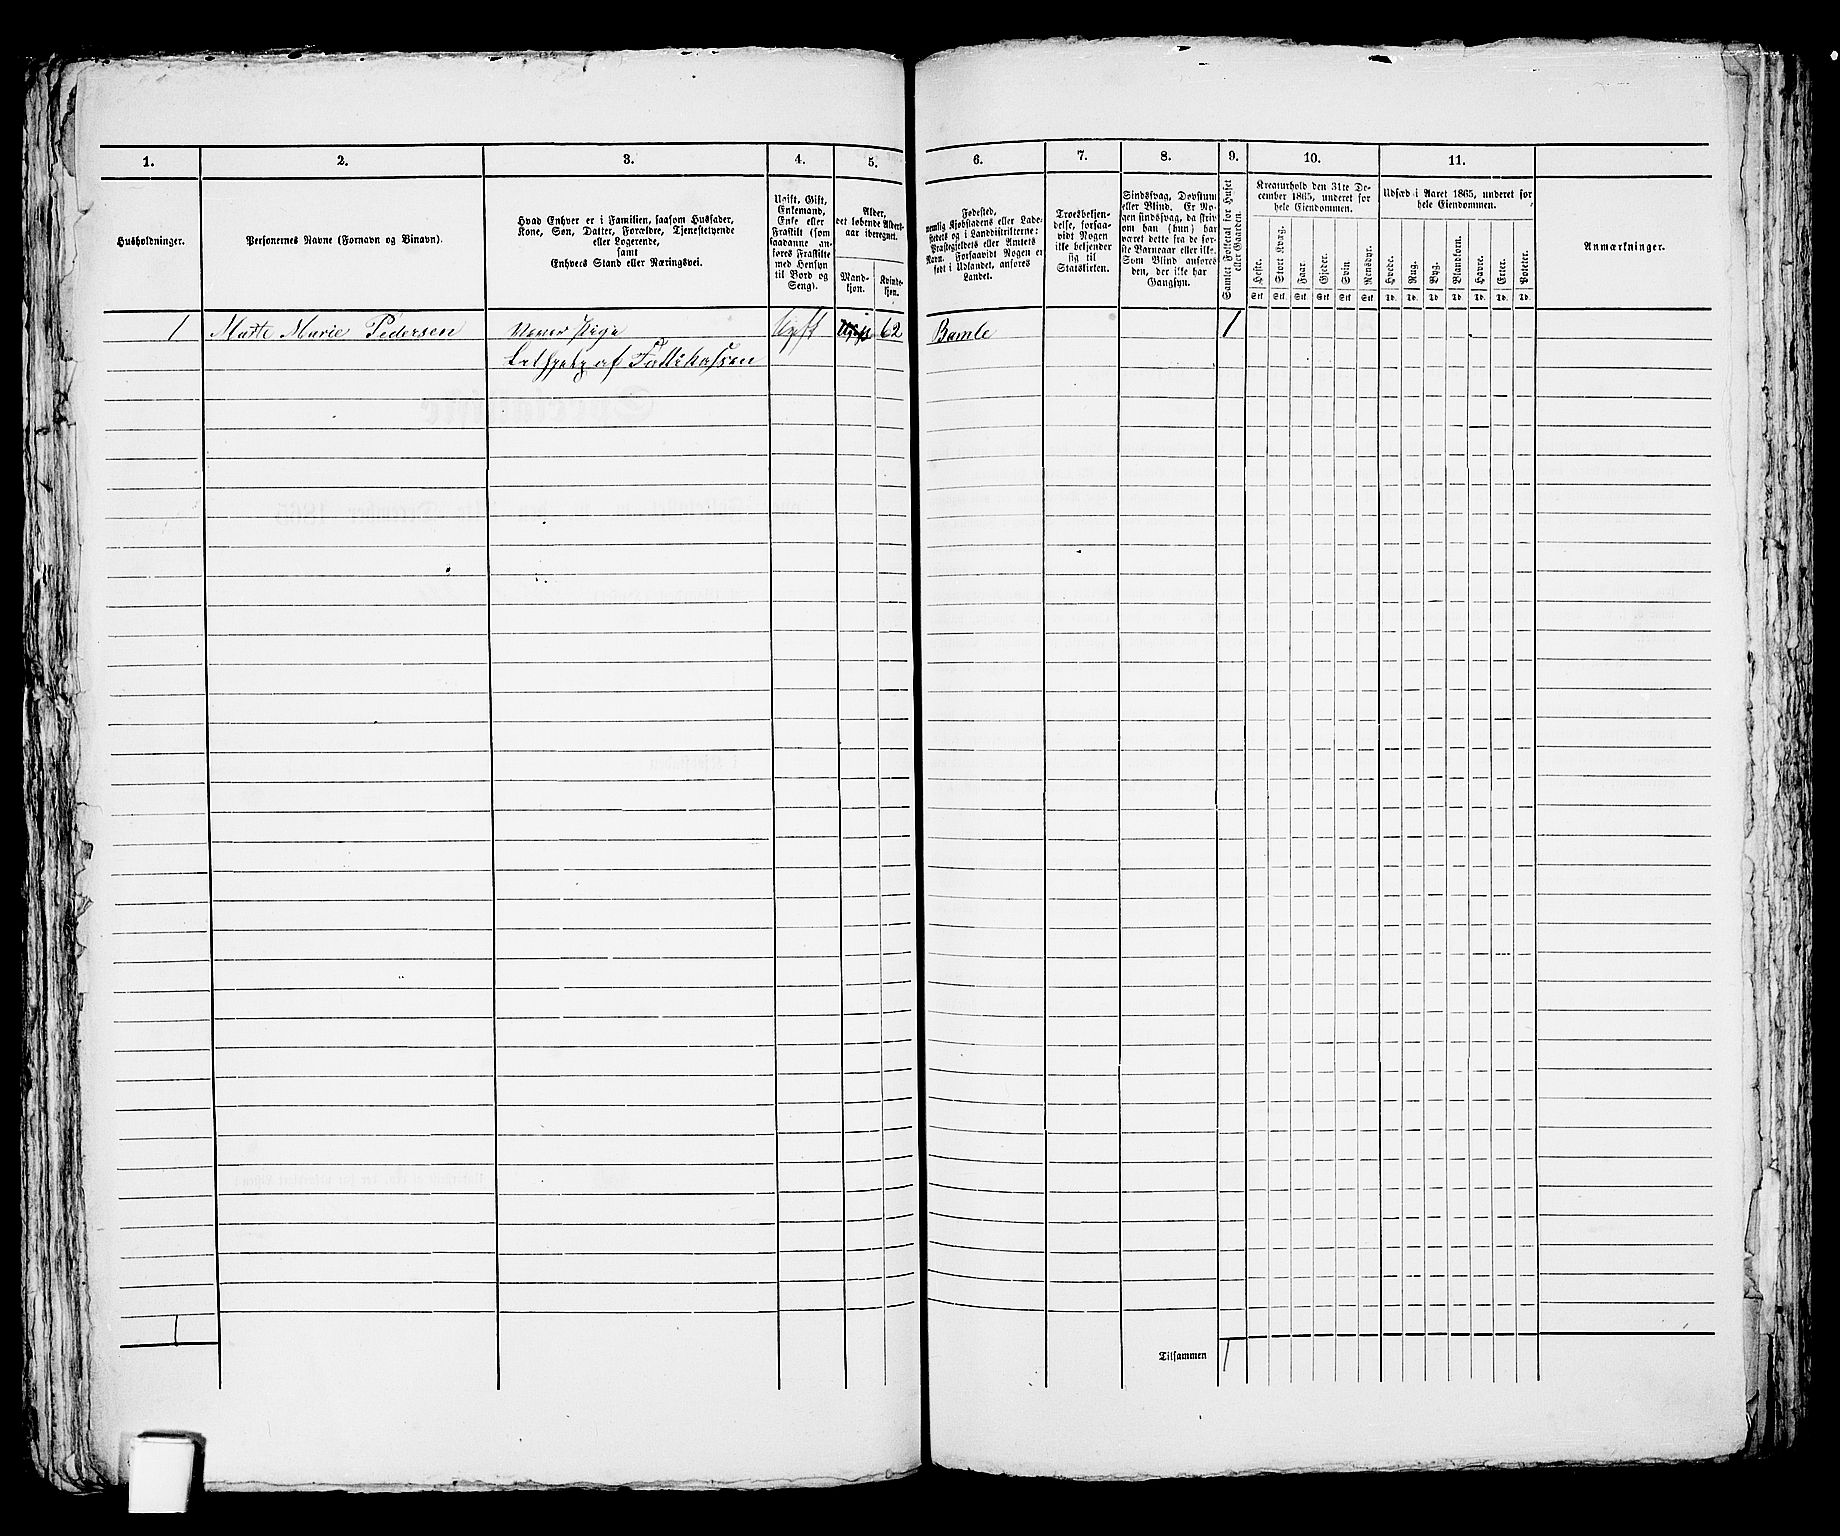 1.
2.
3.
4.
5.
6.
7.
8.
9.
10.
11.
Husholdninger.
Personernes Navne (Fornavn og Binavn).
Hvad Enhver er i Familien, saasom Husfader,
Kone, Søn, Datter, Forældre, Tjenestetyende
eller Logerende,
samt
Enhvers Stand eller Næringsvei.
Ugift, Gift,
Enkemand,
Enke eller
Fraskilt (som
saadanne an-
føres Fraskilte
med Hensyn
til Bord og
Seng).
Alder,
det løbende Alders-
aar iberegnet.
Mand-
kjøn.
Kvinde-
kjøn.
Fødested,
nemlig Kjøbstadens eller Lade-
stedets og i Landdistrikterne:
Præstegjeldets eller Amtets
Navn. Forsaavidt Nogen er
født i Udlandet, anføres
Landet.
Troesbekjen-
delse, forsaa-
vidt Nogen
ikke bekjender
sig til
Statskirken.
Sindssvag, Døvstum
eller Blind. Er No-
gen sindssvag, da skriv
om han (hun) har
været dette fra de før-
ste Barneaar eller ikke.
Som Blind anføres
den, der ikke har
Gangsyn.
Samlet Folketal for Huset
eller Gaarden.
Kreaturhold den 31te De-
cember 1865, underet for
hele Eiendommen.
Heste.
Stort Kvæg.
Faar.
Gjeder.
Svin
Rensdyr.
Stk
Stk.
Stk.
Stk
Stk
Stk
Udsæd i Aaret 1865, underet for
hele Eiendommen.
Hvede.
Rug.
Byg.
Blandkorn.
Havre.
Erter.
Poteter.
Td.
Td.
Td
Td.
Td.
Td.
Td.
Anmærkninger.
1 Marte Marie Pedersen
Pige
Ugift
62
Bamle
1
af Fattikassen
1
Tilsammen
1